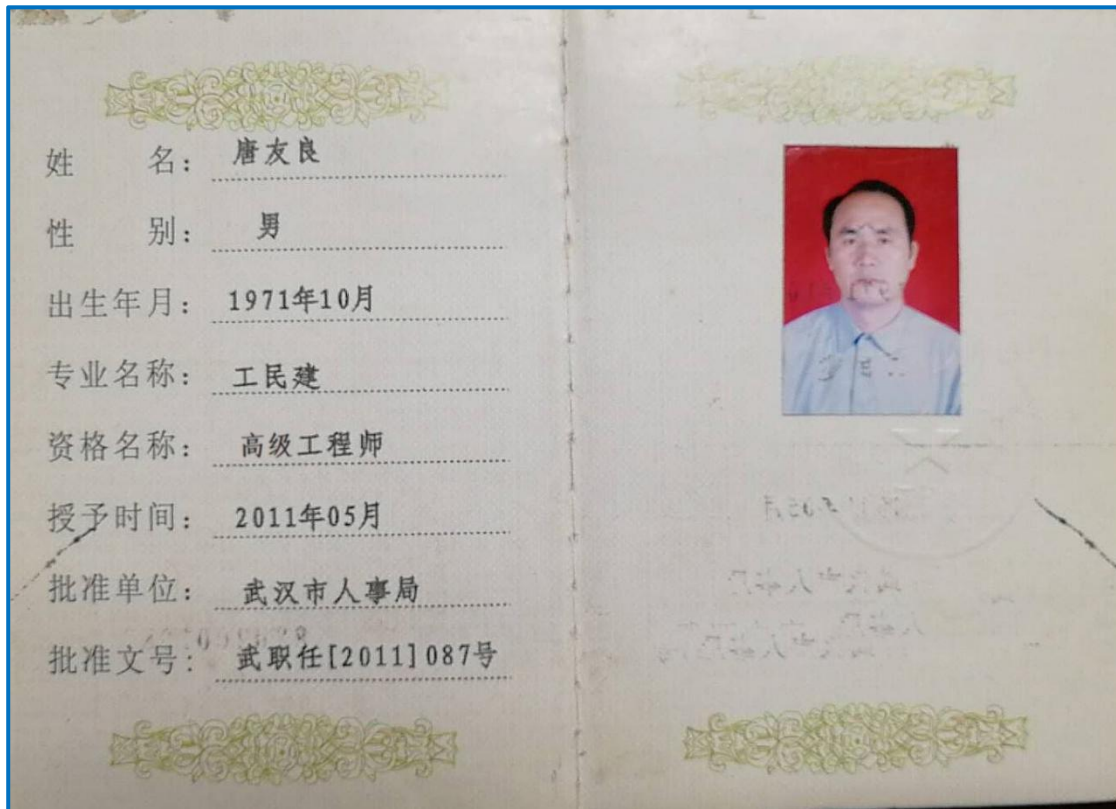 姓 名： 唐友良
性 别： 男
出生年月： 1971年10月
专业名称： 工民建
资格名称： 高级工程师
授予时间： 2011年05月
批准单位： 武汉市人事局
批准文号： 武职任[2011]087号